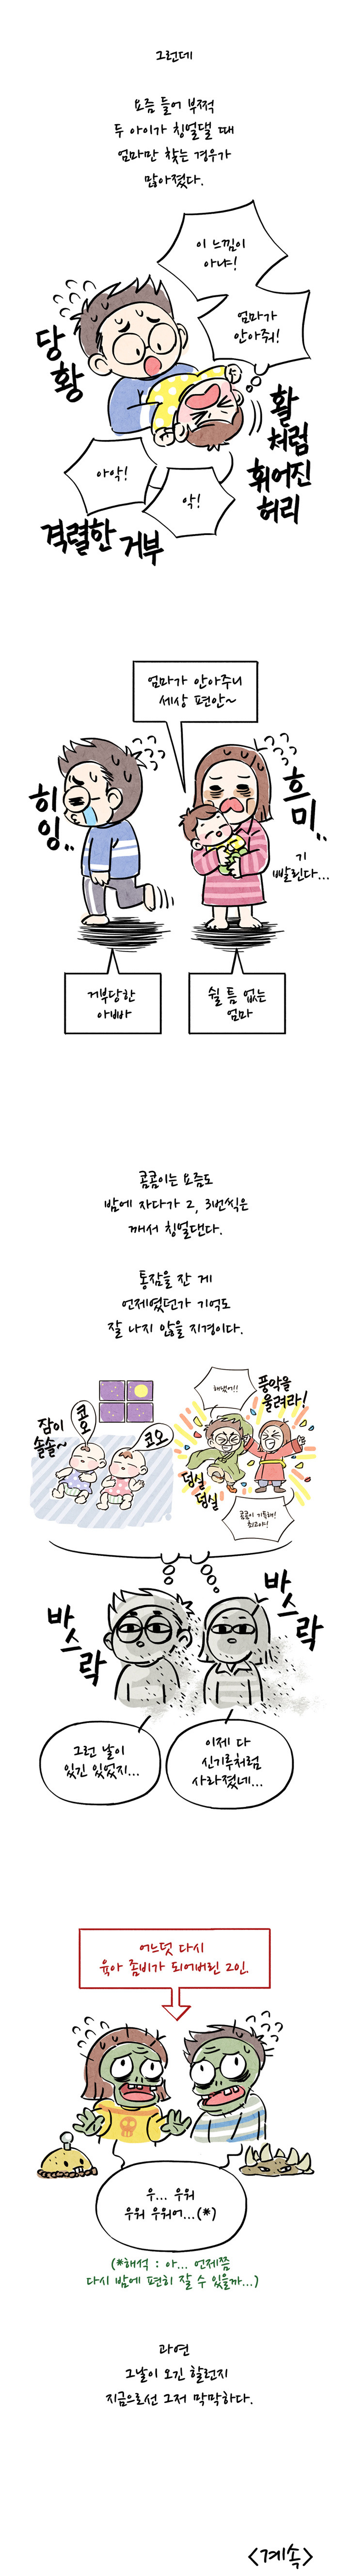 그런데
요즘 들어 부쩍
두 아이가 칭얼댈 때
엄마만 찾는 경우가
많아졌다.
이 느낌이
아냐!
엄마가
안아줘!
당
황
활
처럼
휘어진
허리
아악!
악!
격렬한 거부
엄마가 안아주니
세상 편안~
히
잉..
흐
미..
기
빨린다...
거부당한
아빠
쉴 틈 없는
엄마
콤콤이는 요즘도
밤에 자다가 2, 3번씩은
깨서 칭얼댄다.
통잠을 잔 게
언제였던가 기억도
잘 나지 않을 지경이다.
잠이
솔솔~
코오
코오
해냈어!!
풍악을
울려라!
덩실
덩실
콤콤이 기특해!
최고야!
바
스
락
바
스
락
그런 날이
있긴 있었지...
이제 다
신기루처럼
사라졌네...
어느덧 다시
육아 좀비가 되어버린 2인.
우... 우워
우워 우워어...(*)
(*해석 : 아... 언제쯤
다시 밤에 편히 잘 수 있을까...)
과연
그날이 오긴 할런지
지금으로선 그저 막막하다.
<계속>